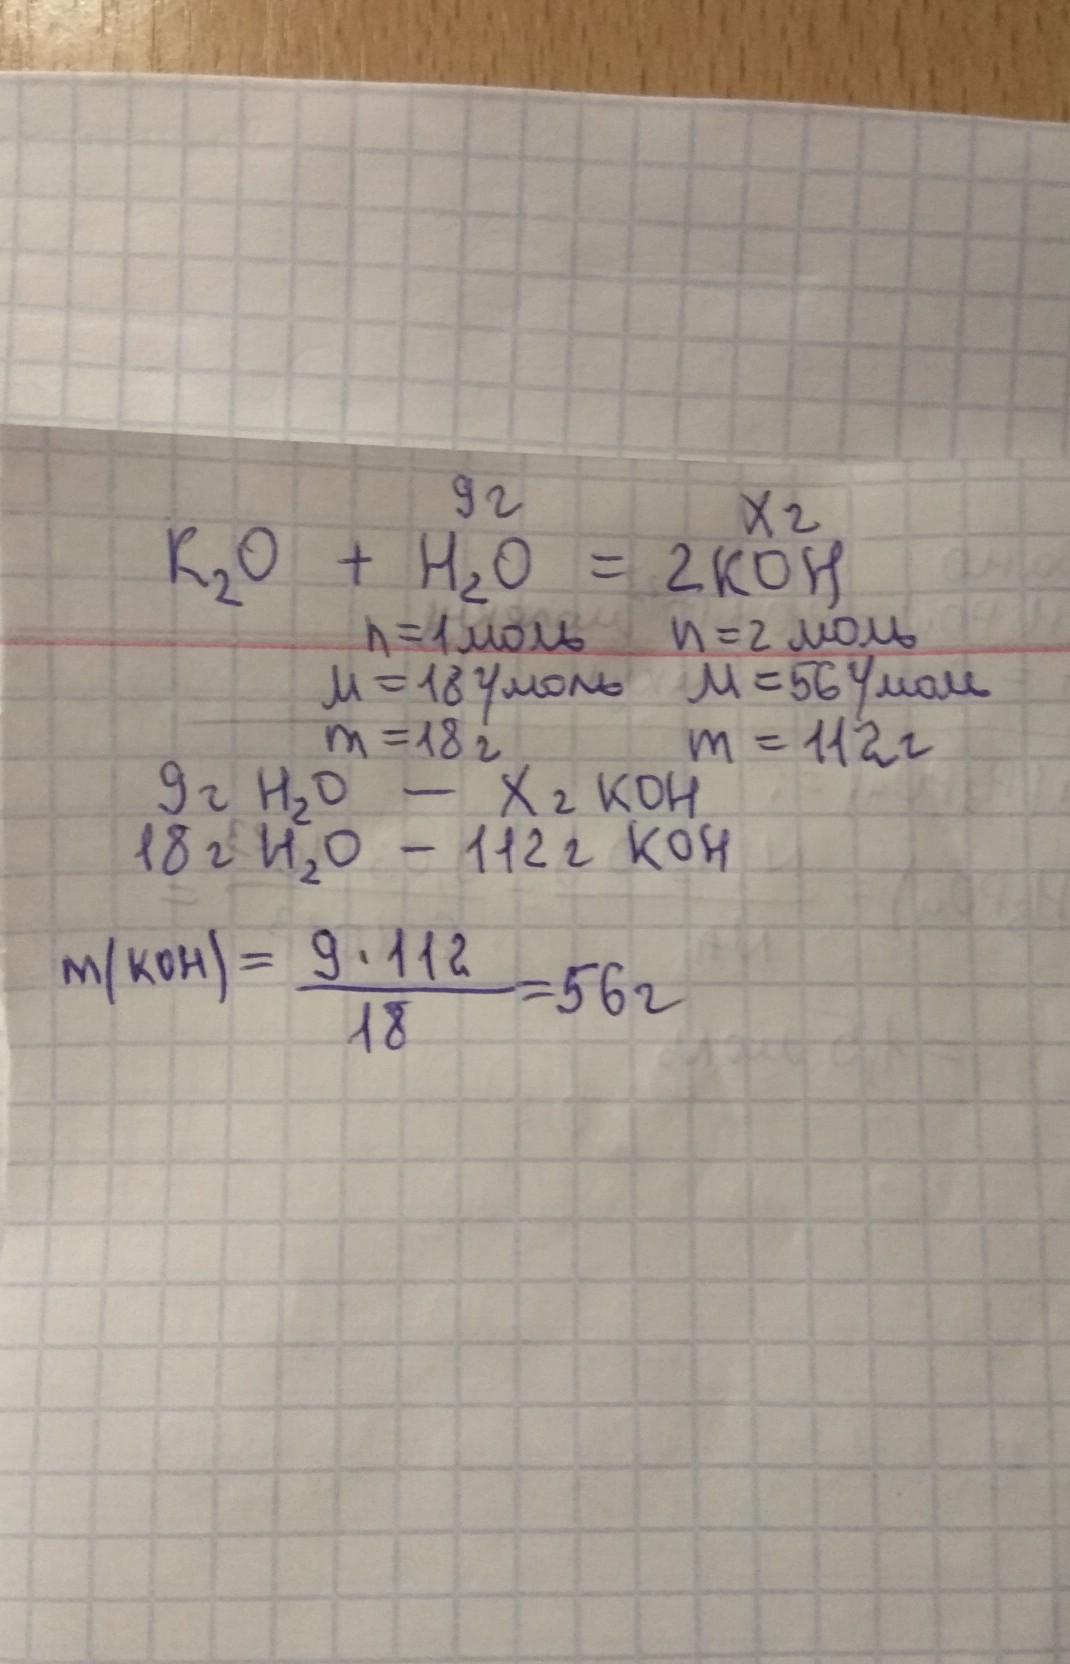 9г Xг
K₂O + H₂O = 2KOH
n=1моль n=2 моль
M=18г/моль M=56г/моль
m=18г m = 112г
9г H₂O – Xг KOH
18г H₂O – 112г KOH
m(KOH) = 9·112/18 = 56г